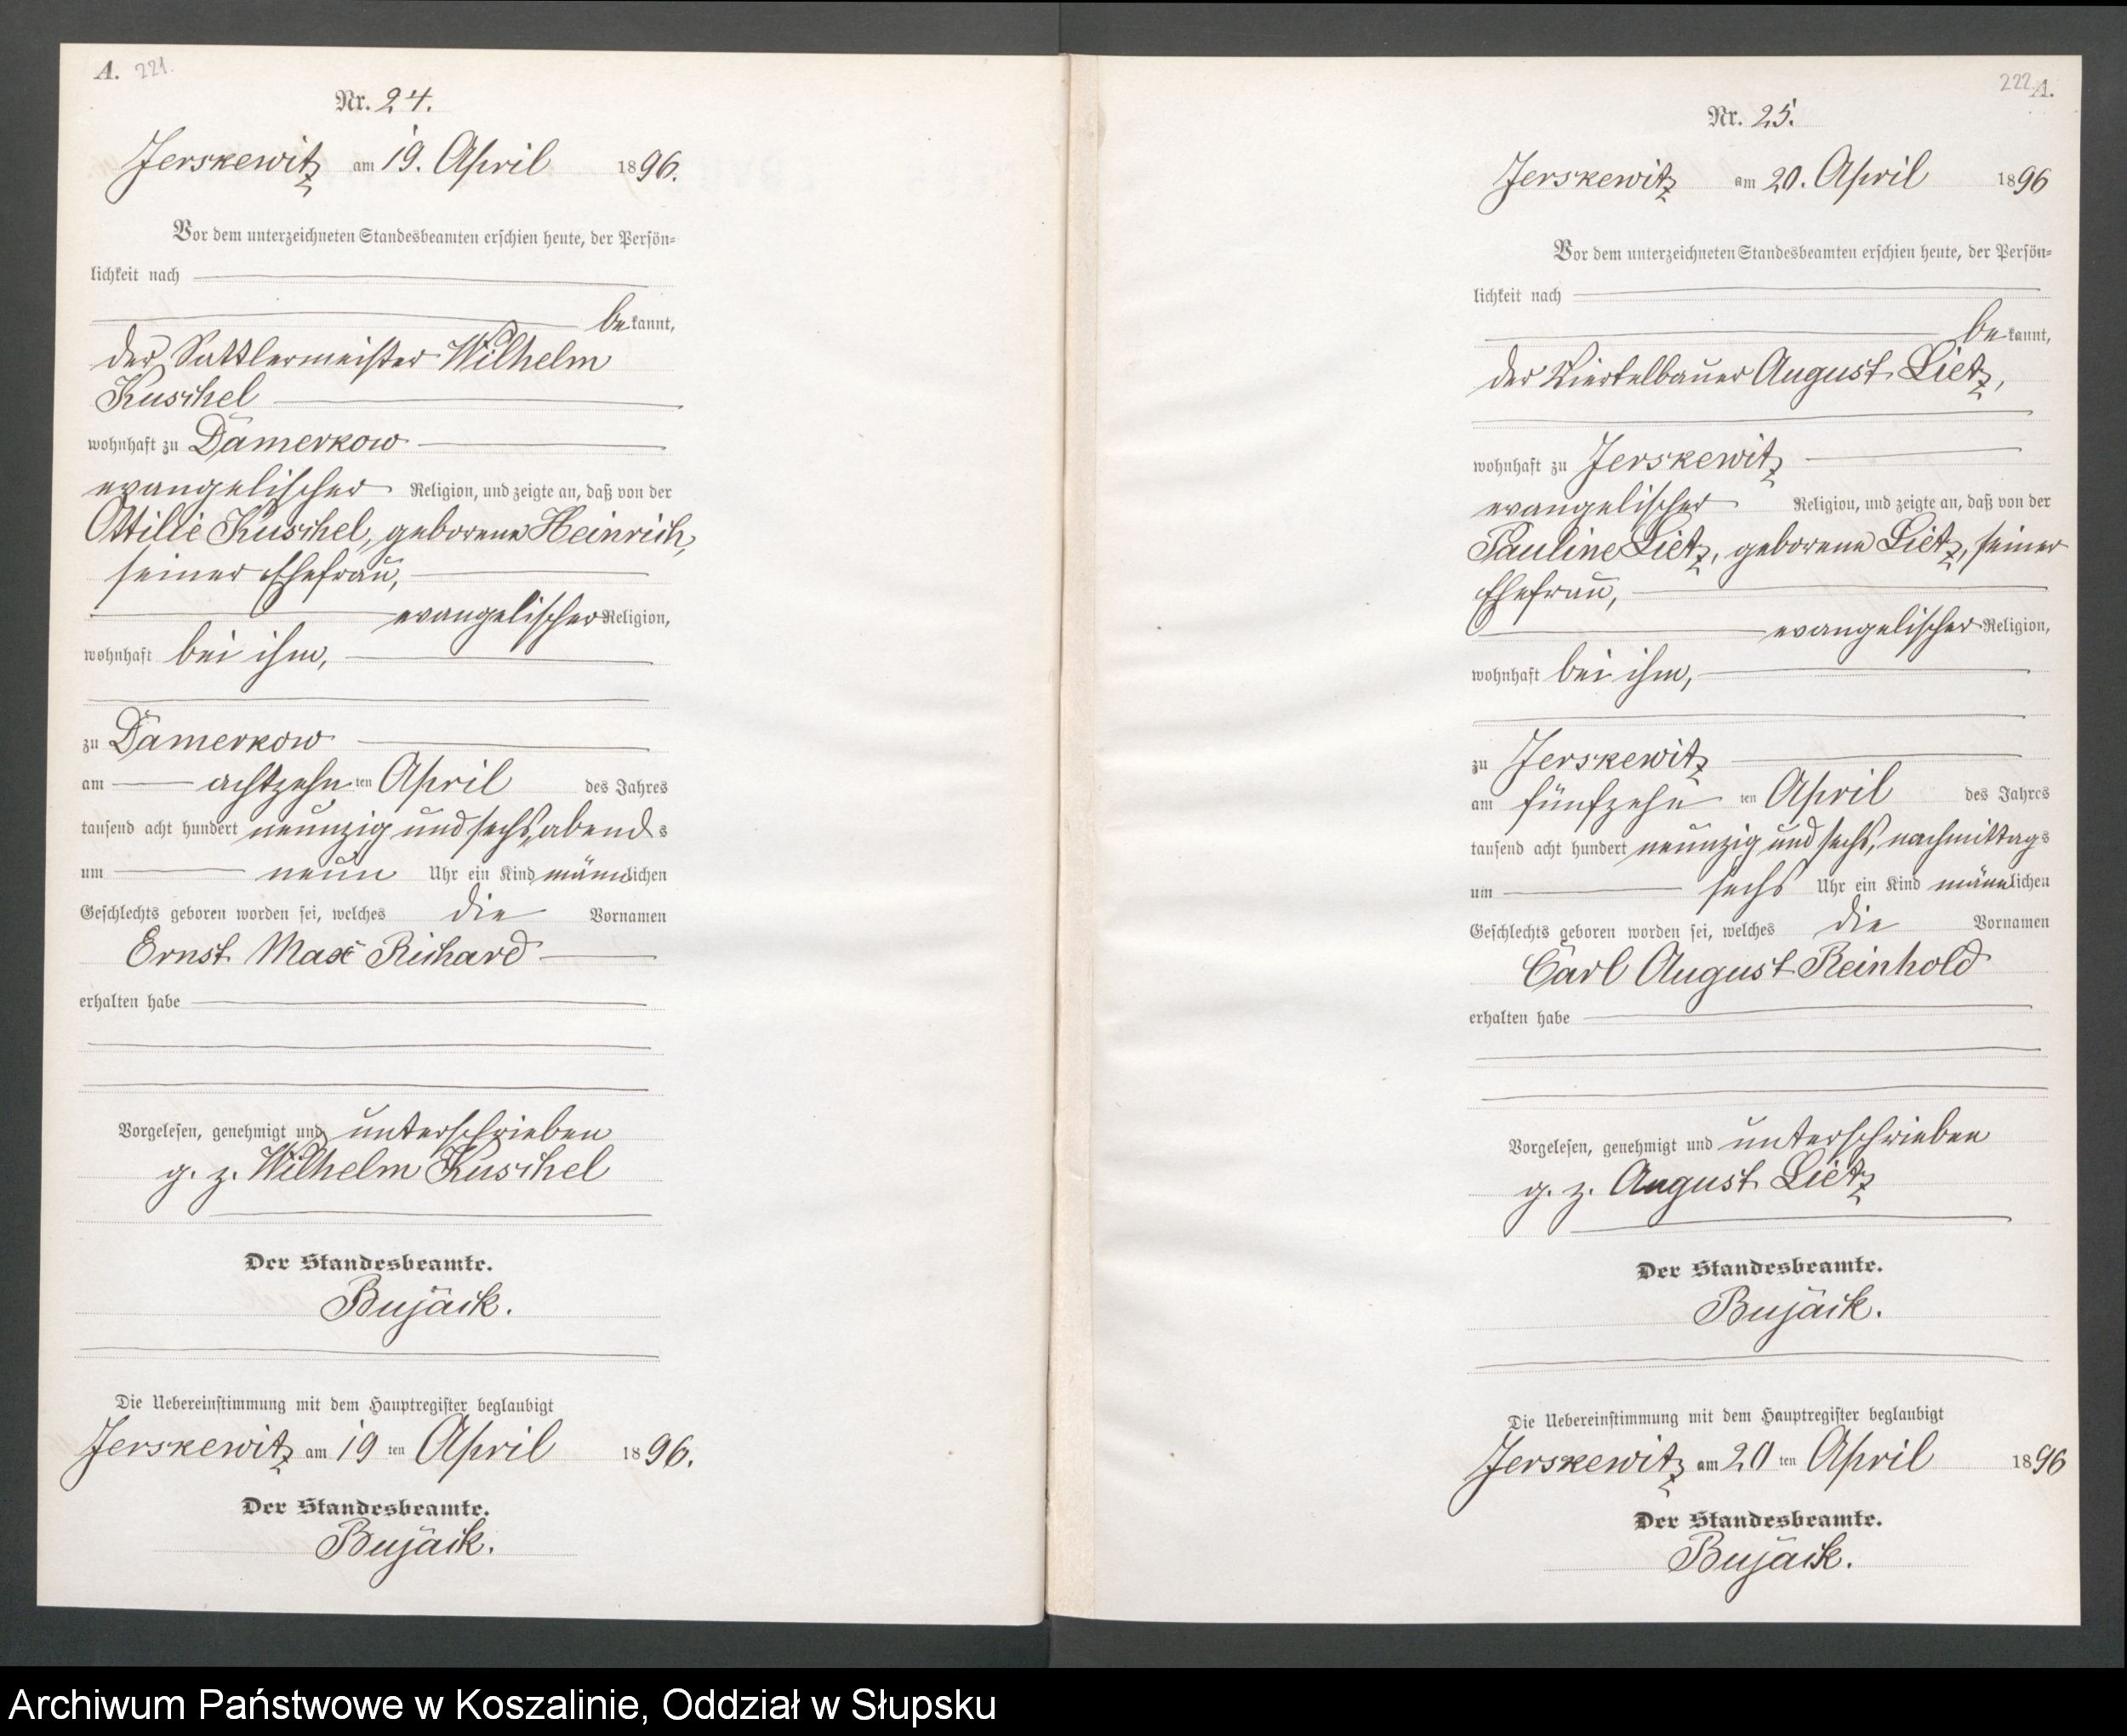 A. 221.
Nr. 24.
Jerskewitz am 19. April 1896.
Vor dem unterzeichneten Standesbeamten erschien heute, der Persön-
lichkeit nach
bekannt,
der Sattlermeister Wilhelm
Kuschel
wohnhaft zu Damerkow
evangelischer Religion, und zeigte an, daß von der
Ottilie Kuschel, geborene Heinrich,
seiner Ehefrau,
evangelischer Religion,
wohnhaft bei ihm,
zu Damerkow
am achtzehnten April des Jahres
tausend acht hundert neunzig und sechs, abends
um neun Uhr ein Kind männlichen
Geschlechts geboren worden sei, welches die Vornamen
Ernst Max Richard
erhalten habe
Vorgelesen, genehmigt und unterschrieben
g. z. Wilhelm Kuschel
Der Standesbeamte.
Bujäck.
Die Uebereinstimmung mit dem Hauptregister beglaubigt
Jerskewitz am 19 ten April 1896.
Der Standesbeamte.
Bujäck.
222 A.
Nr. 25.
Jerskewitz am 20. April 1896
Vor dem unterzeichneten Standesbeamten erschien heute, der Persön-
lichkeit nach
bekannt,
der Viertelbauer August Lietz,
wohnhaft zu Jerskewitz
evangelischer Religion, und zeigte an, daß von der
Pauline Lietz, geborene Lietz, seiner
Ehefrau,
evangelischer Religion,
wohnhaft bei ihm,
zu Jerskewitz
am fünfzehn ten April des Jahres
tausend acht hundert neunzig und sechs, nachmittags
um sechs Uhr ein Kind männlichen
Geschlechts geboren worden sei, welches die Vornamen
Carl August Reinhold
erhalten habe
Vorgelesen, genehmigt und unterschrieben
g. z. August Lietz
Der Standesbeamte.
Bujäck.
Die Uebereinstimmung mit dem Hauptregister beglaubigt
Jerskewitz am 20 ten April 1896
Der Standesbeamte.
Bujäck.
Archiwum Państwowe w Koszalinie, Oddział w Słupsku